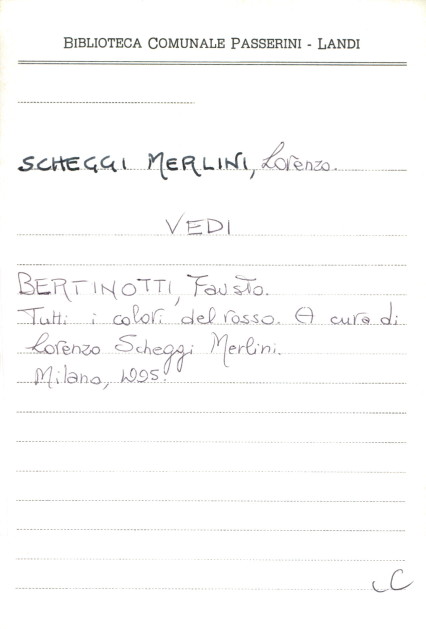 BIBLIOTECA COMUNALE PASSERINI - LANDI
SCHEGGI MERLINI, Lorenzo.
VEDI
BERTINOTTI, Fausto.
Tutti i colori del rosso. A cura di
Lorenzo Scheggi Merlini.
Milano, 1995.